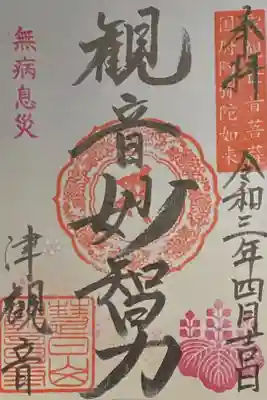 奉拝
令和三年四月吉日
聖観世音菩薩
国府阿弥陀如来
観音妙智力
無病息災
津観音